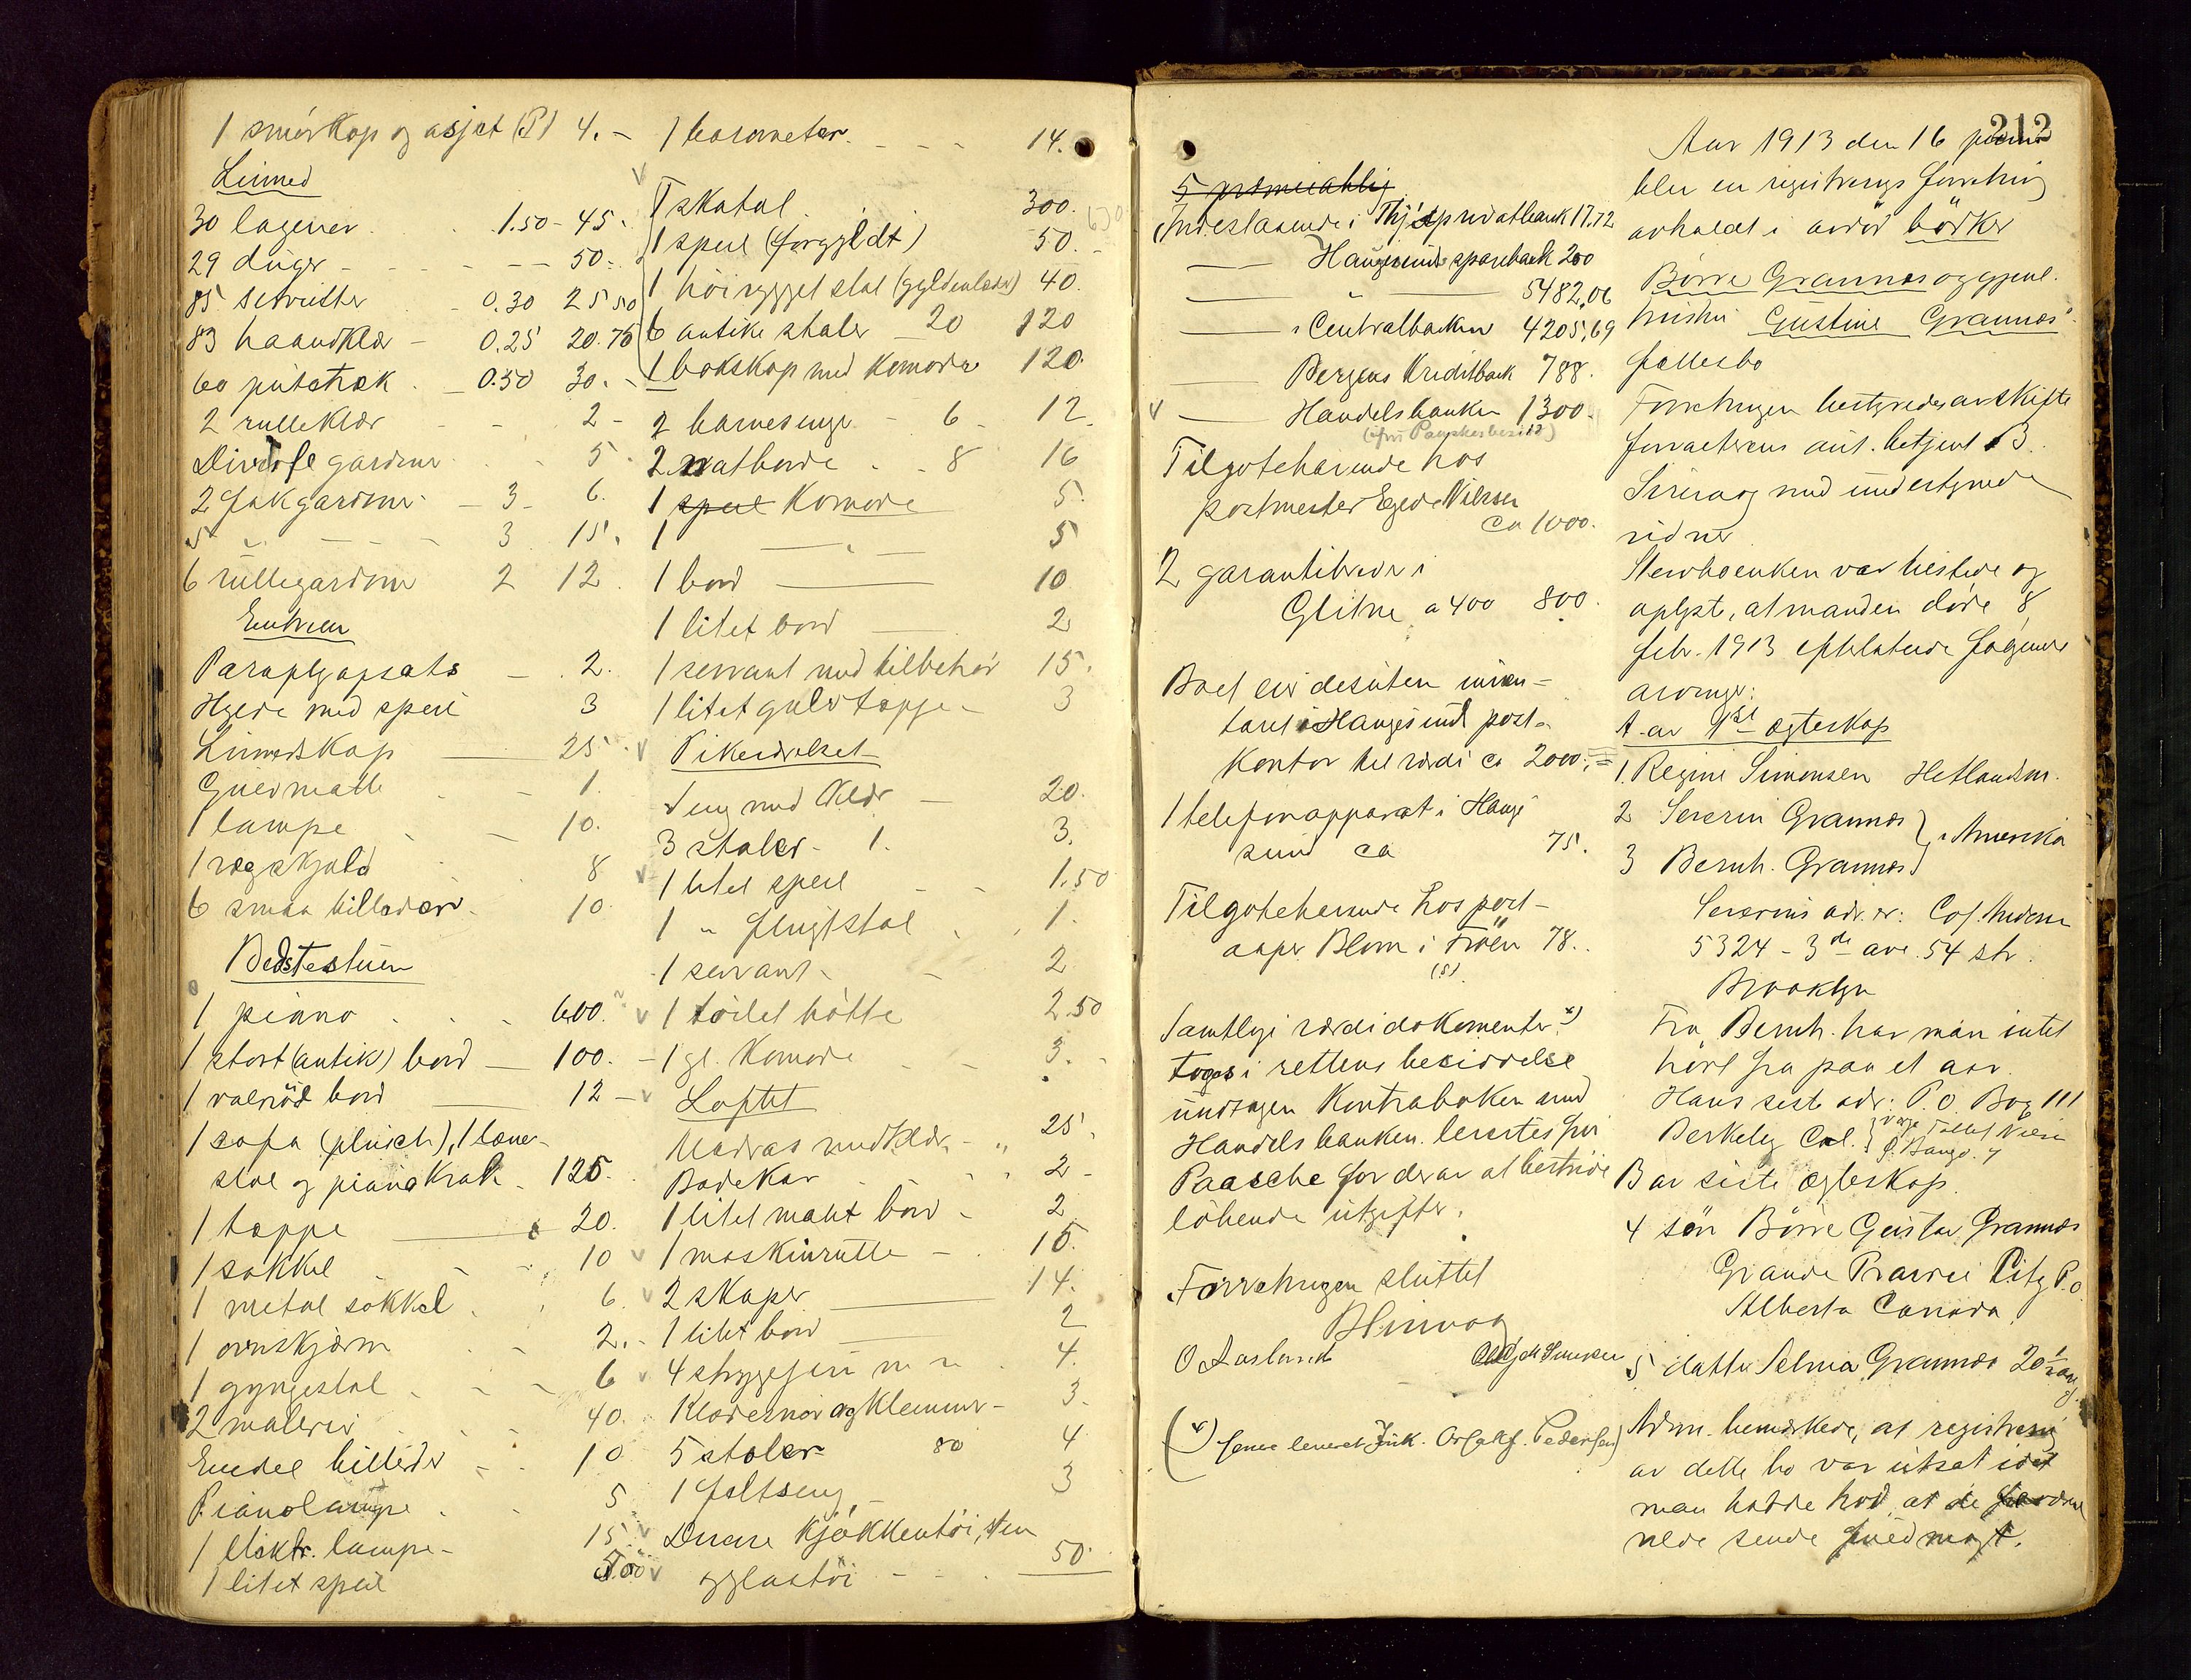 1 smörkop og asjet (P) 4.-
Linned
30 lagener . . 1.50 - 45.-
29 duger - - - - 50.-
85 servietter - 0.30 25 50
83 haandklær - 0.25 20.75
60 putetræk . - 0.50 30.-
2 rulleklær - - 2 -
Diverse gardiner . . 5.
2 fakgardiner - 3 - 6.
5 " - - - 3 15.
6 rullegardiner 2 12.
Entreen
Paraplyopsats - 2.
Hylde med speil 3
Linnedskap 25.
Gulvmatte - 1.
1 lampe - 10.
1 røgskjold . 8
6 smaa billeder - 10
Bedstestuen
1 piano . . . 600.
1 stort (antik) bord - 100.
1 valnöd bord 12
1 sofa (plüsch), 1 læne-
stol og pianokrak - 125.
1 tæppe 20.
1 sokkel 10
1 metal sokkel . . 6.
1 ovnskjærm . . 2.-
1 gyngestol . . - 6
2 malerier . . . 40.
Endel billeder - - 10
Pianolampe . 5
1 elektr. lampe - 15
1 litet speil
1 barometer. - - - 14.
1 skatol . . 300.
1 speil (forgyldt) 50.
1 höirygget stol (gyldenlæder) 40.
6 antike stoler - 20 120
1 bokskap med komode 120.
2 barnesenge - 6 - 12.
2 natborde . . 8 16
1 speil komode 5.
1 " 5
1 bord 10
1 litet bord 2
1 servant med tilbehör 15.
1 litet gulvtæppe - 3
Pikeværelset
1 seng med klær - 20.
3 stoler - 1. 3.
1 litet speil - - 1.50
1 " flugtstol . . 1.
1 servant - - 2
1 toilet bötte 2.50
1 gl. komode - - 3. -
Loftet
Madras med klær - " 25.
Badekar . . . 2 -
1 litet malt bord - 2
1 maskinrulle - . 15.
2 skaper 14.
1 litet bord 2
4 strygejern m. m. . 4.
Klædesnor og klemmer - 3.
5 stoler 80 4
1 feltseng - 3
Diverse kjökkentöi, sten
og glastöi - - . 50.
5
Indestaaende i Privatbank 17.72
Haugesunds sparebank 200
" 5482.06
" Centralbanken 4205,69
Bergens Kreditbank 788.
Handelsbanken 1300.
Tilgodehavende hos
postmester Egede Nilssen
ca 1000.
2 garantibeviser i
Glitne a 400 800.
Boet eier desuten inven-
taret i Haugesund post-
kontor til værdi ca 2000.-
1 telefonapparat i Hauge
sund ca 75.
Tilgodehavende hos post-
aaper Blom i 78.
Samtlige værdidokumenter *)
toges i rettens besiddelse
undtagen kontraboken med
Handelsbanken. leveredes fru
Paasche for derav at bestride
löbende utgifter.
Forretningen sluttet
O Aasland
(*) senere leveret Pedersen)
212
Aar 1913 den 16
blev en registrerings forretning
avholdt i avdöd bödker
Börre Grannæs og gjenl.
hustru Gustine Grannæs'
fællesbo
Forretningen bestyredes av skifte
forvalterens aut. betjent B.
med undertegnede
vidner
Sterboenken var tilstede og
oplyste, at manden döde 8
febr. 1913 efterlatende fölgende
arvinger:
A. av 1ste ægteskap
1. Regine Simonsen Hetlandsm.
2 Severin Grannæs } i Amerika
3 Bernh. Grannæs
Severins adr. er: Co/.
5324 - 3de ave. 54 str.
Brooklyn
Fra Bernh. har man intet
hört fra paa et aar.
Hans siste adr: P.O. Box 111
Berkeley Cal.
B av siste ægteskap.
4 sön Börre Gustav Grannæs
Grande Prairie City P.o.
Alberta Canada
5 datter Selma Grannæs 20 1/2 aar
Adm. bemærkede, at registrering
av dette bo var utsat idet
man hadde haab at de
vilde sende fuldmagt.